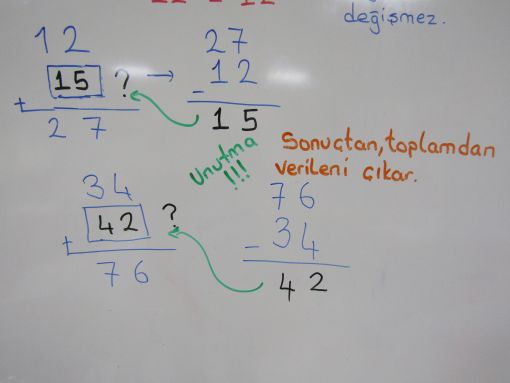 değişmez.
12
15 ?
+
27
→
27
- 12
15
Unutma
!!!
Sonuçtan, toplamdan
verileni çıkar.
34
42 ?
+
76
76
- 34
42